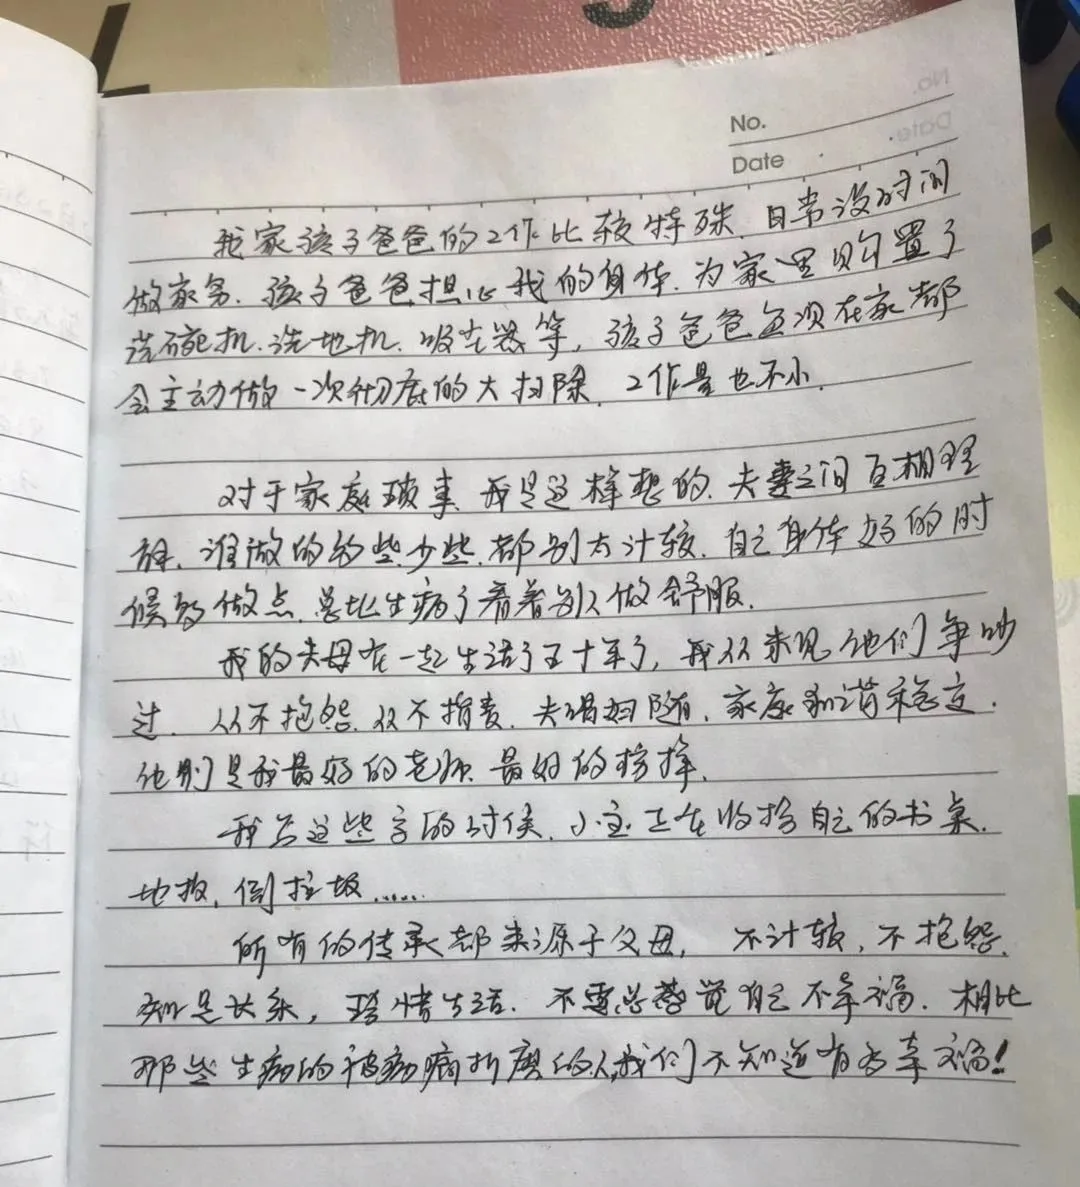 No.
Date
我家孩子爸爸的工作比较特殊.日常没时间
做家务.孩子爸爸担心我的身体.为家里购置了
洗碗机.洗地机.吸尘器等,孩子爸爸每次在家都
会主动做一次彻底的大扫除.工作量也不小.
对于家庭琐事.我是这样想的.夫妻之间互相理
解.谁做的多些.少些.都别太计较.自己身体好的时
候多做点.总比生病了看着别人做舒服.
我的父母在一起生活了五十年了,我从未见他们争吵
过.从不抱怨.从不指责.夫唱妇随.家庭和谐稳定.
他们是我最好的老师.最好的榜样.
我写这些字的时候.小宝正在收拾自己的书桌.
地板,倒垃圾......
所有的传承都来源于父母,不计较,不抱怨.
知足长乐,珍惜生活.不要总感觉自己不幸福.相比
那些生病的被病痛折磨的人,我们不知道有多幸福!